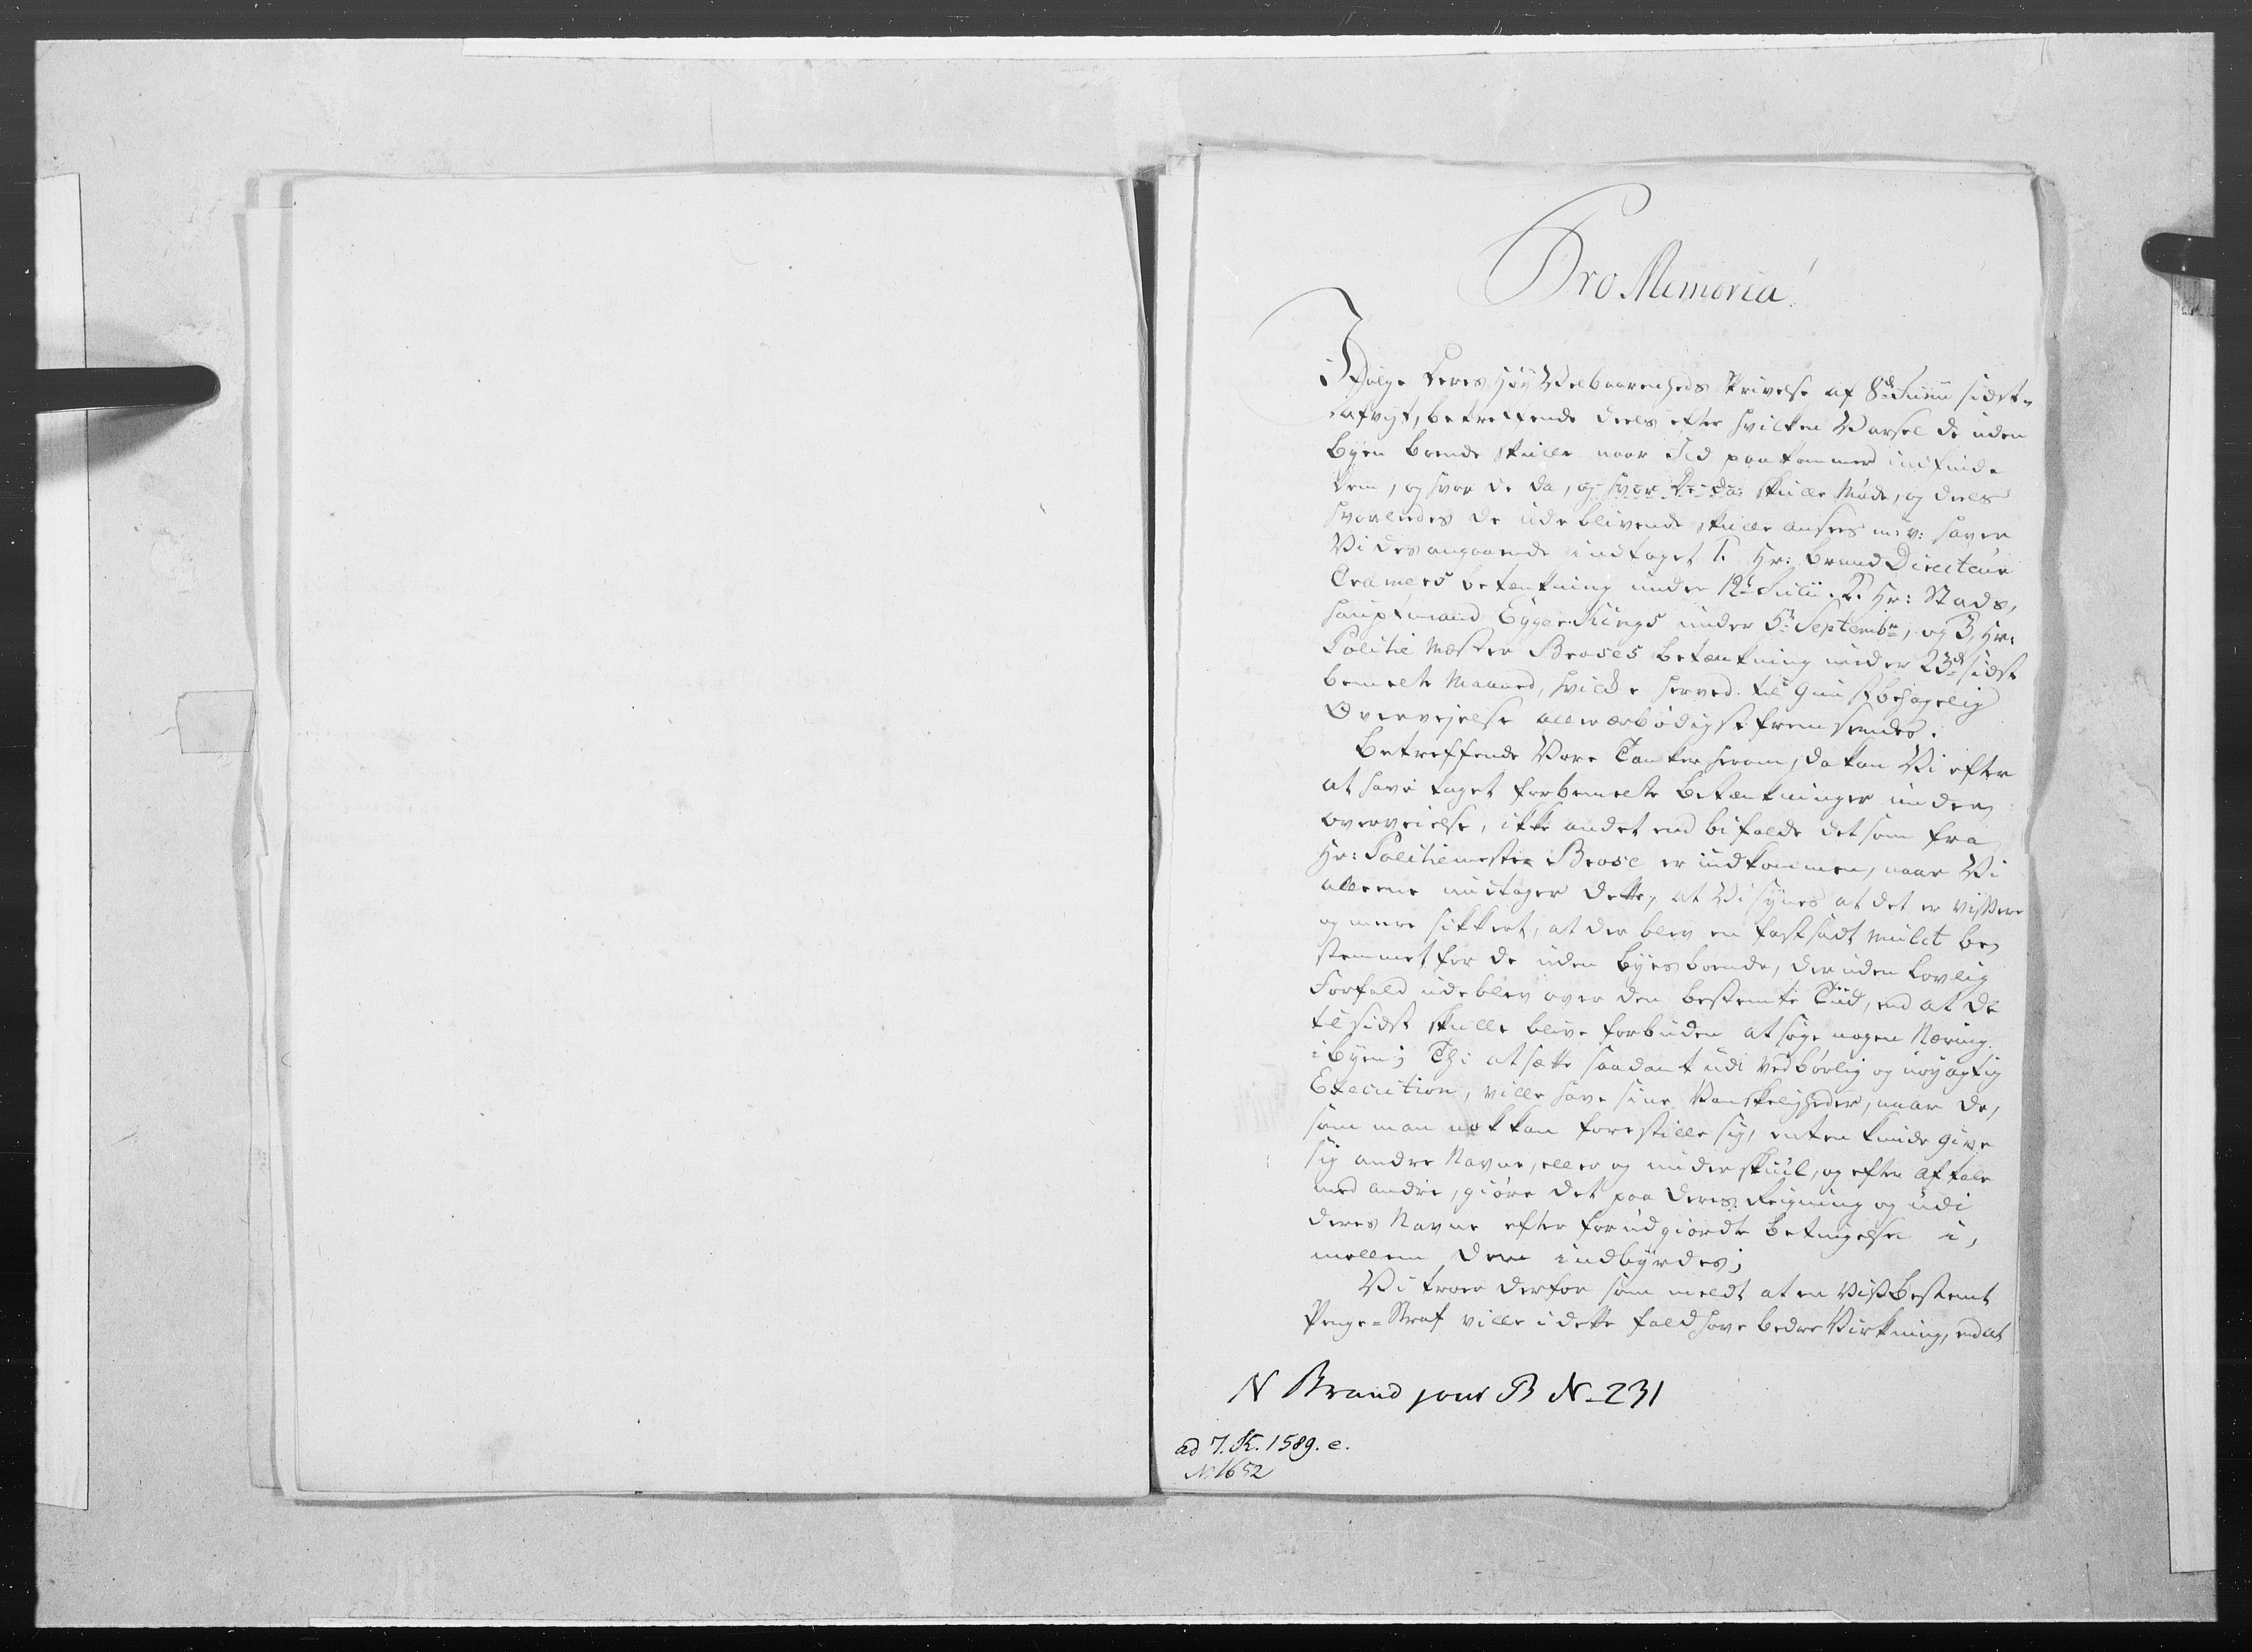 Pro Memoria!
I Følge Deres Høy Velbaarenheds Skrivelse af 8de Junii sidst-
afvigt, betreffende deels efter hvilken Varsel de uden
Byen boende skulle naar Ild paakommer indfinde
dem, og hvor de da, og hvor De da: skulle Møde, og deels
hvorledes de udeblivende skulle ansees m: v: haver
Vi desangaaende indtaget 1. Hr: Brand Directeur
Cramers betænkning under 12te Julii. 2. Hr: Stads,
hauptmand Eggerkings under 5te Septembr, og 3, Hr:
Politie Mester Broses betænkning under 23de sidst
bemelte Maaned, hvilke herved til Gunstbehagelig
Overvejelse allerærbødigst fremsendes.
Betreffende Vore Tanker herom, da kan Vi efter
at have taget forbemelte Betænkninger under
overveielse, ikke andet end bifalde det som fra
Hr: Politiemester Brose er indkommen, naar Vi
alleene undtager dette, at Vi synes at det er vissere
og mere sikkert, at der blev en fastsadt Mulct be,
stemmet for de uden Byes boende, der uden Lovlig
Forfald udeblev over den bestemte Tiid, end at de
til sidst skulle blive forbuden at søge nogen Næring
i Byen; Thi at sætte saadant udi vedbørlig og nøyagtig
Execution, ville have sine Vanskeligheder, naar de,
som man nok kan forestille sig, enten kunde give
sig andre Navne, eller og under skiul, og efter aftale
med andre, giøre det paa deres Reigning og udi
deres Navne efter forudgiordte betingelse i,
mellem dem indbyrdes;
Vi troer derfor som meldt at en vis bestemt
Penge-Straf ville i dette fald have bedre Virkning, end at
N Brand jour B No 231
ad J. K. 1589. e.
No 1652